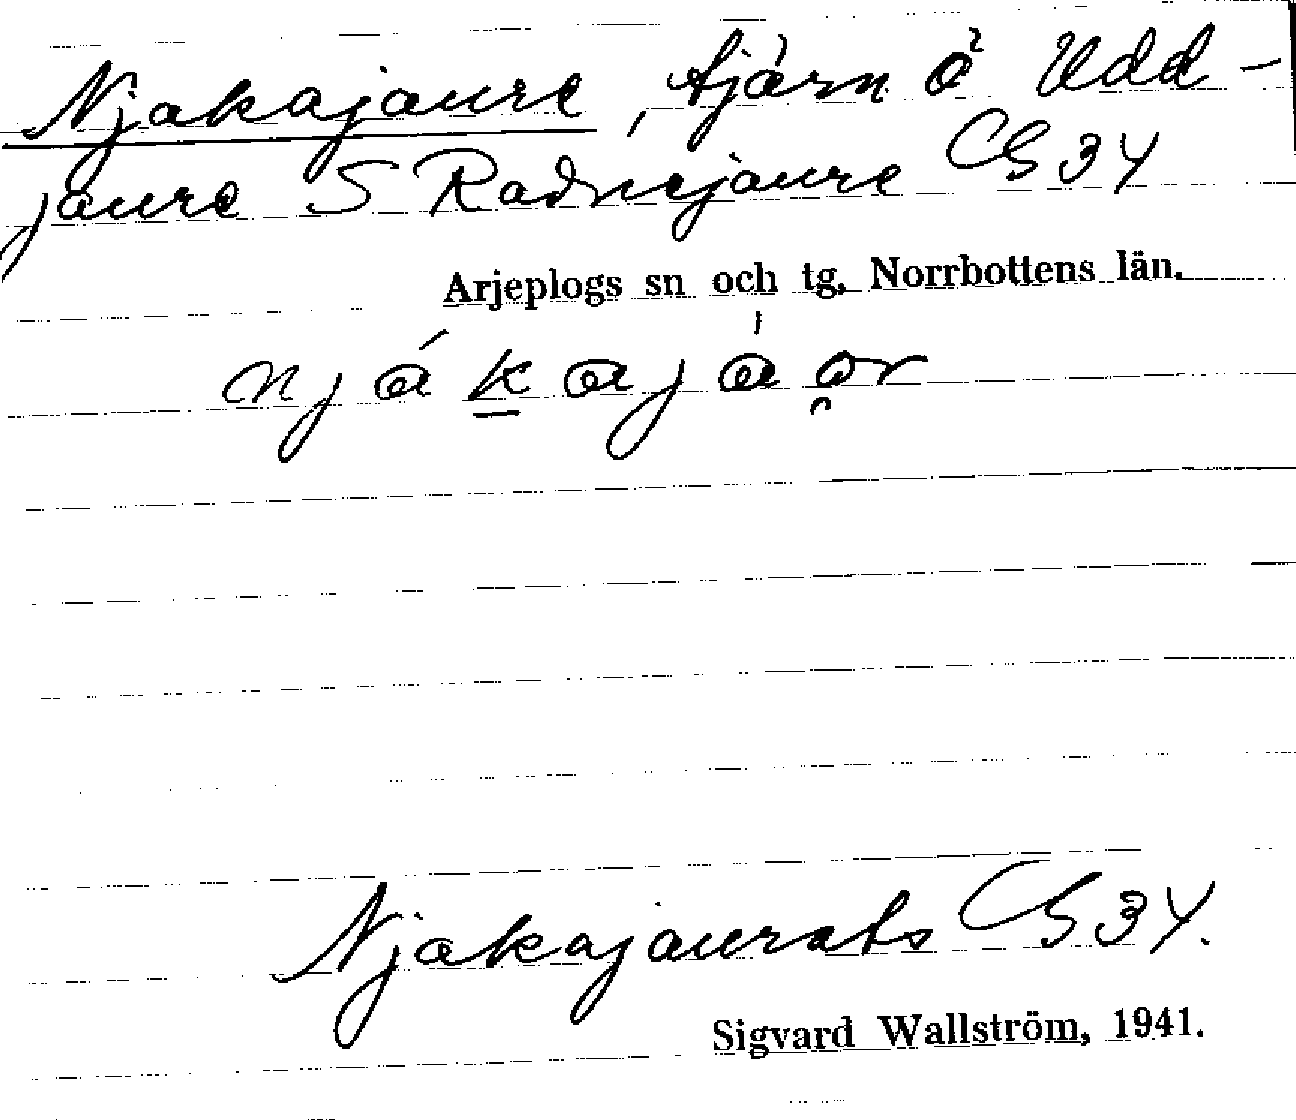 Njakajaure, tjärn å Udd-
jaure S Radnejaure GS34
Arjeplogs sn och tg, Norrbottens län.
njákajȧo̯r
Njakajaurats GS34.
Sigvard Wallström, 1941.